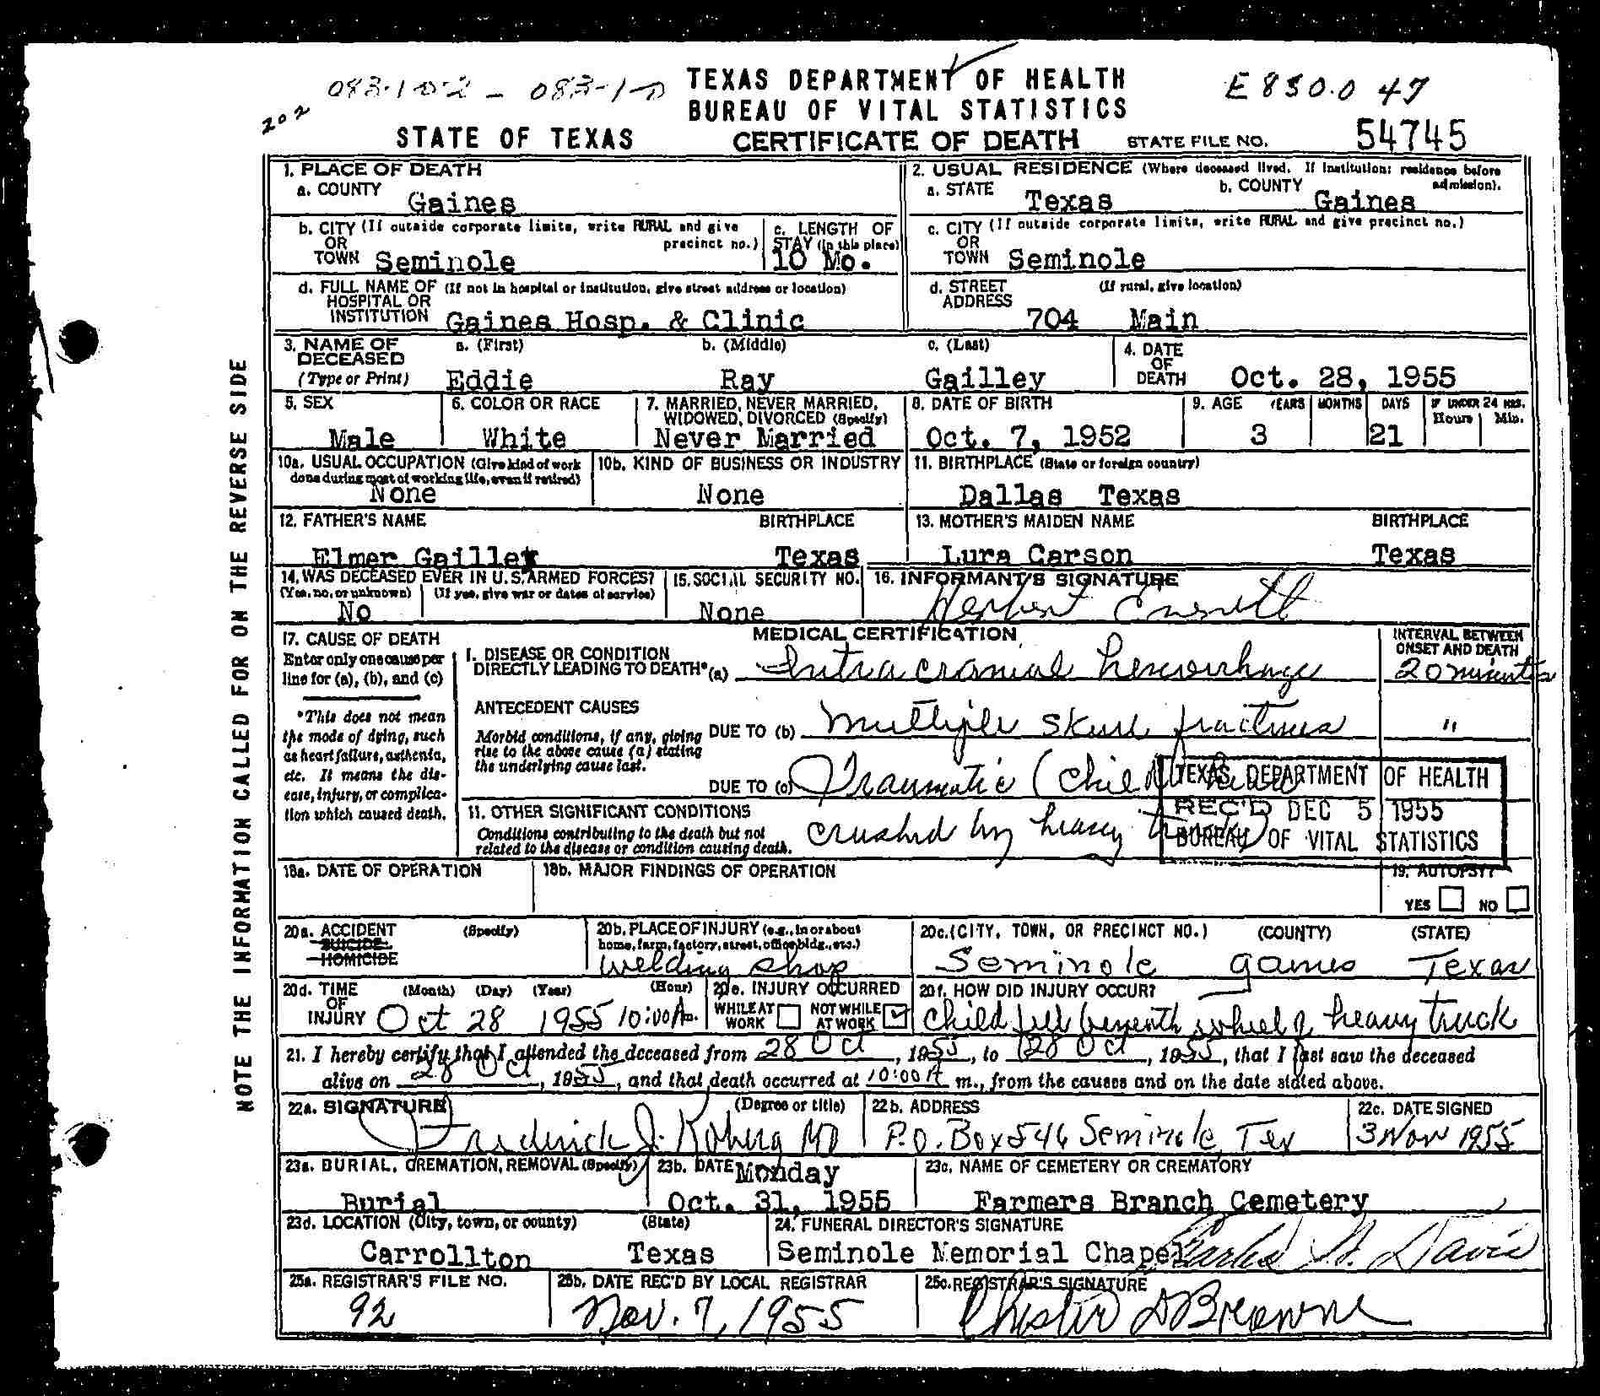 083-10-2 - 083-1-0
202
TEXAS DEPARTMENT OF HEALTH
BUREAU OF VITAL STATISTICS
E830.0 47
STATE OF TEXAS
CERTIFICATE OF DEATH
STATE FILE NO. 54745
NOTE THE INFORMATION CALLED FOR ON THE REVERSE SIDE
1. PLACE OF DEATH
a. COUNTY Gaines
2. USUAL RESIDENCE (Where deceased lived. If institution: residence before admission).
a. STATE Texas b. COUNTY Gaines
b. CITY (If outside corporate limits, write RURAL and give precinct no.)
OR
TOWN Seminole
c. LENGTH OF
STAY (in this place)
10 Mo.
c. CITY (If outside corporate limits, write RURAL and give precinct no.)
OR
TOWN Seminole
d. FULL NAME OF (If not in hospital or institution, give street address or location)
HOSPITAL OR
INSTITUTION Gaines Hosp. & Clinic
d. STREET (If rural, give location)
ADDRESS
704 Main
3. NAME OF DECEASED
(Type or Print)
a. (First) b. (Middle) c. (Last)
Eddie Ray Gailley
4. DATE OF DEATH Oct. 28, 1955
5. SEX
Male
6. COLOR OR RACE
White
7. MARRIED, NEVER MARRIED,
WIDOWED, DIVORCED (Specify)
Never Married
8. DATE OF BIRTH
Oct. 7, 1952
9. AGE YEARS MONTHS DAYS IF UNDER 24 HRS.
Hours Min.
3 21
10a. USUAL OCCUPATION (Give kind of work
done during most of working life, even if retired)
None
10b. KIND OF BUSINESS OR INDUSTRY
None
11. BIRTHPLACE (State or foreign country)
Dallas Texas
12. FATHER'S NAME BIRTHPLACE
Elmer Gailley Texas
13. MOTHER'S MAIDEN NAME BIRTHPLACE
Lura Carson Texas
14. WAS DECEASED EVER IN U.S. ARMED FORCES?
(Yes, no, or unknown) (If yes, give war or dates of service)
No
15. SOCIAL SECURITY NO.
None
16. INFORMANT'S SIGNATURE
Herbert
17. CAUSE OF DEATH
Enter only one cause per
line for (a), (b), and (c)
*This does not mean
the mode of dying, such
as heart failure, asthenia,
etc. It means the dis-
ease, injury, or complica-
tion which caused death.
MEDICAL CERTIFICATION
INTERVAL BETWEEN
ONSET AND DEATH
I. DISEASE OR CONDITION
DIRECTLY LEADING TO DEATH* (a) Intra cranial hemorrhage 20 minutes
ANTECEDENT CAUSES
Morbid conditions, if any, giving
rise to the above cause (a) stating
the underlying cause last.
DUE TO (b) Multiple skull fractures "
DUE TO (c) Traumatic (child
11. OTHER SIGNIFICANT CONDITIONS
Conditions contributing to the death but not
related to the disease or condition causing death.
crushed by heavy truck)
TEXAS DEPARTMENT OF HEALTH
REC'D DEC 5 1955
BUREAU OF VITAL STATISTICS
18a. DATE OF OPERATION
18b. MAJOR FINDINGS OF OPERATION
19. AUTOPSY?
YES NO
20a. ACCIDENT (Specify)
SUICIDE
HOMICIDE
20b. PLACE OF INJURY (e.g., in or about
home, farm, factory, street, office bldg., etc.)
welding shop
20c. (CITY, TOWN, OR PRECINCT NO.) (COUNTY) (STATE)
Seminole Gaines Texas
20d. TIME OF INJURY (Month) (Day) (Year) (Hour)
Oct 28 1955 10:00 Am.
20e. INJURY OCCURRED
WHILE AT WORK NOT WHILE AT WORK ✓
20f. HOW DID INJURY OCCUR?
Child fell beneath wheel of heavy truck
21. I hereby certify that I attended the deceased from 28 Oct, 1955, to 28 Oct, 1955, that I last saw the deceased
alive on 28 Oct, 1955, and that death occurred at 10:00 A m., from the causes and on the date stated above.
22a. SIGNATURE (Degree or title)
Frederick J. MD
22b. ADDRESS
P.O. Box 546 Seminole, Tex
22c. DATE SIGNED
3 Nov 1955
23a. BURIAL, CREMATION, REMOVAL (Specify)
Burial
23b. DATE Monday
Oct. 31, 1955
23c. NAME OF CEMETERY OR CREMATORY
Farmers Branch Cemetery
23d. LOCATION (City, town, or county) (State)
Carrollton Texas
24. FUNERAL DIRECTOR'S SIGNATURE
Seminole Memorial Chapel Davis
25a. REGISTRAR'S FILE NO.
92
25b. DATE REC'D BY LOCAL REGISTRAR
Nov. 7, 1955
25c. REGISTRAR'S SIGNATURE
Chester D Browne